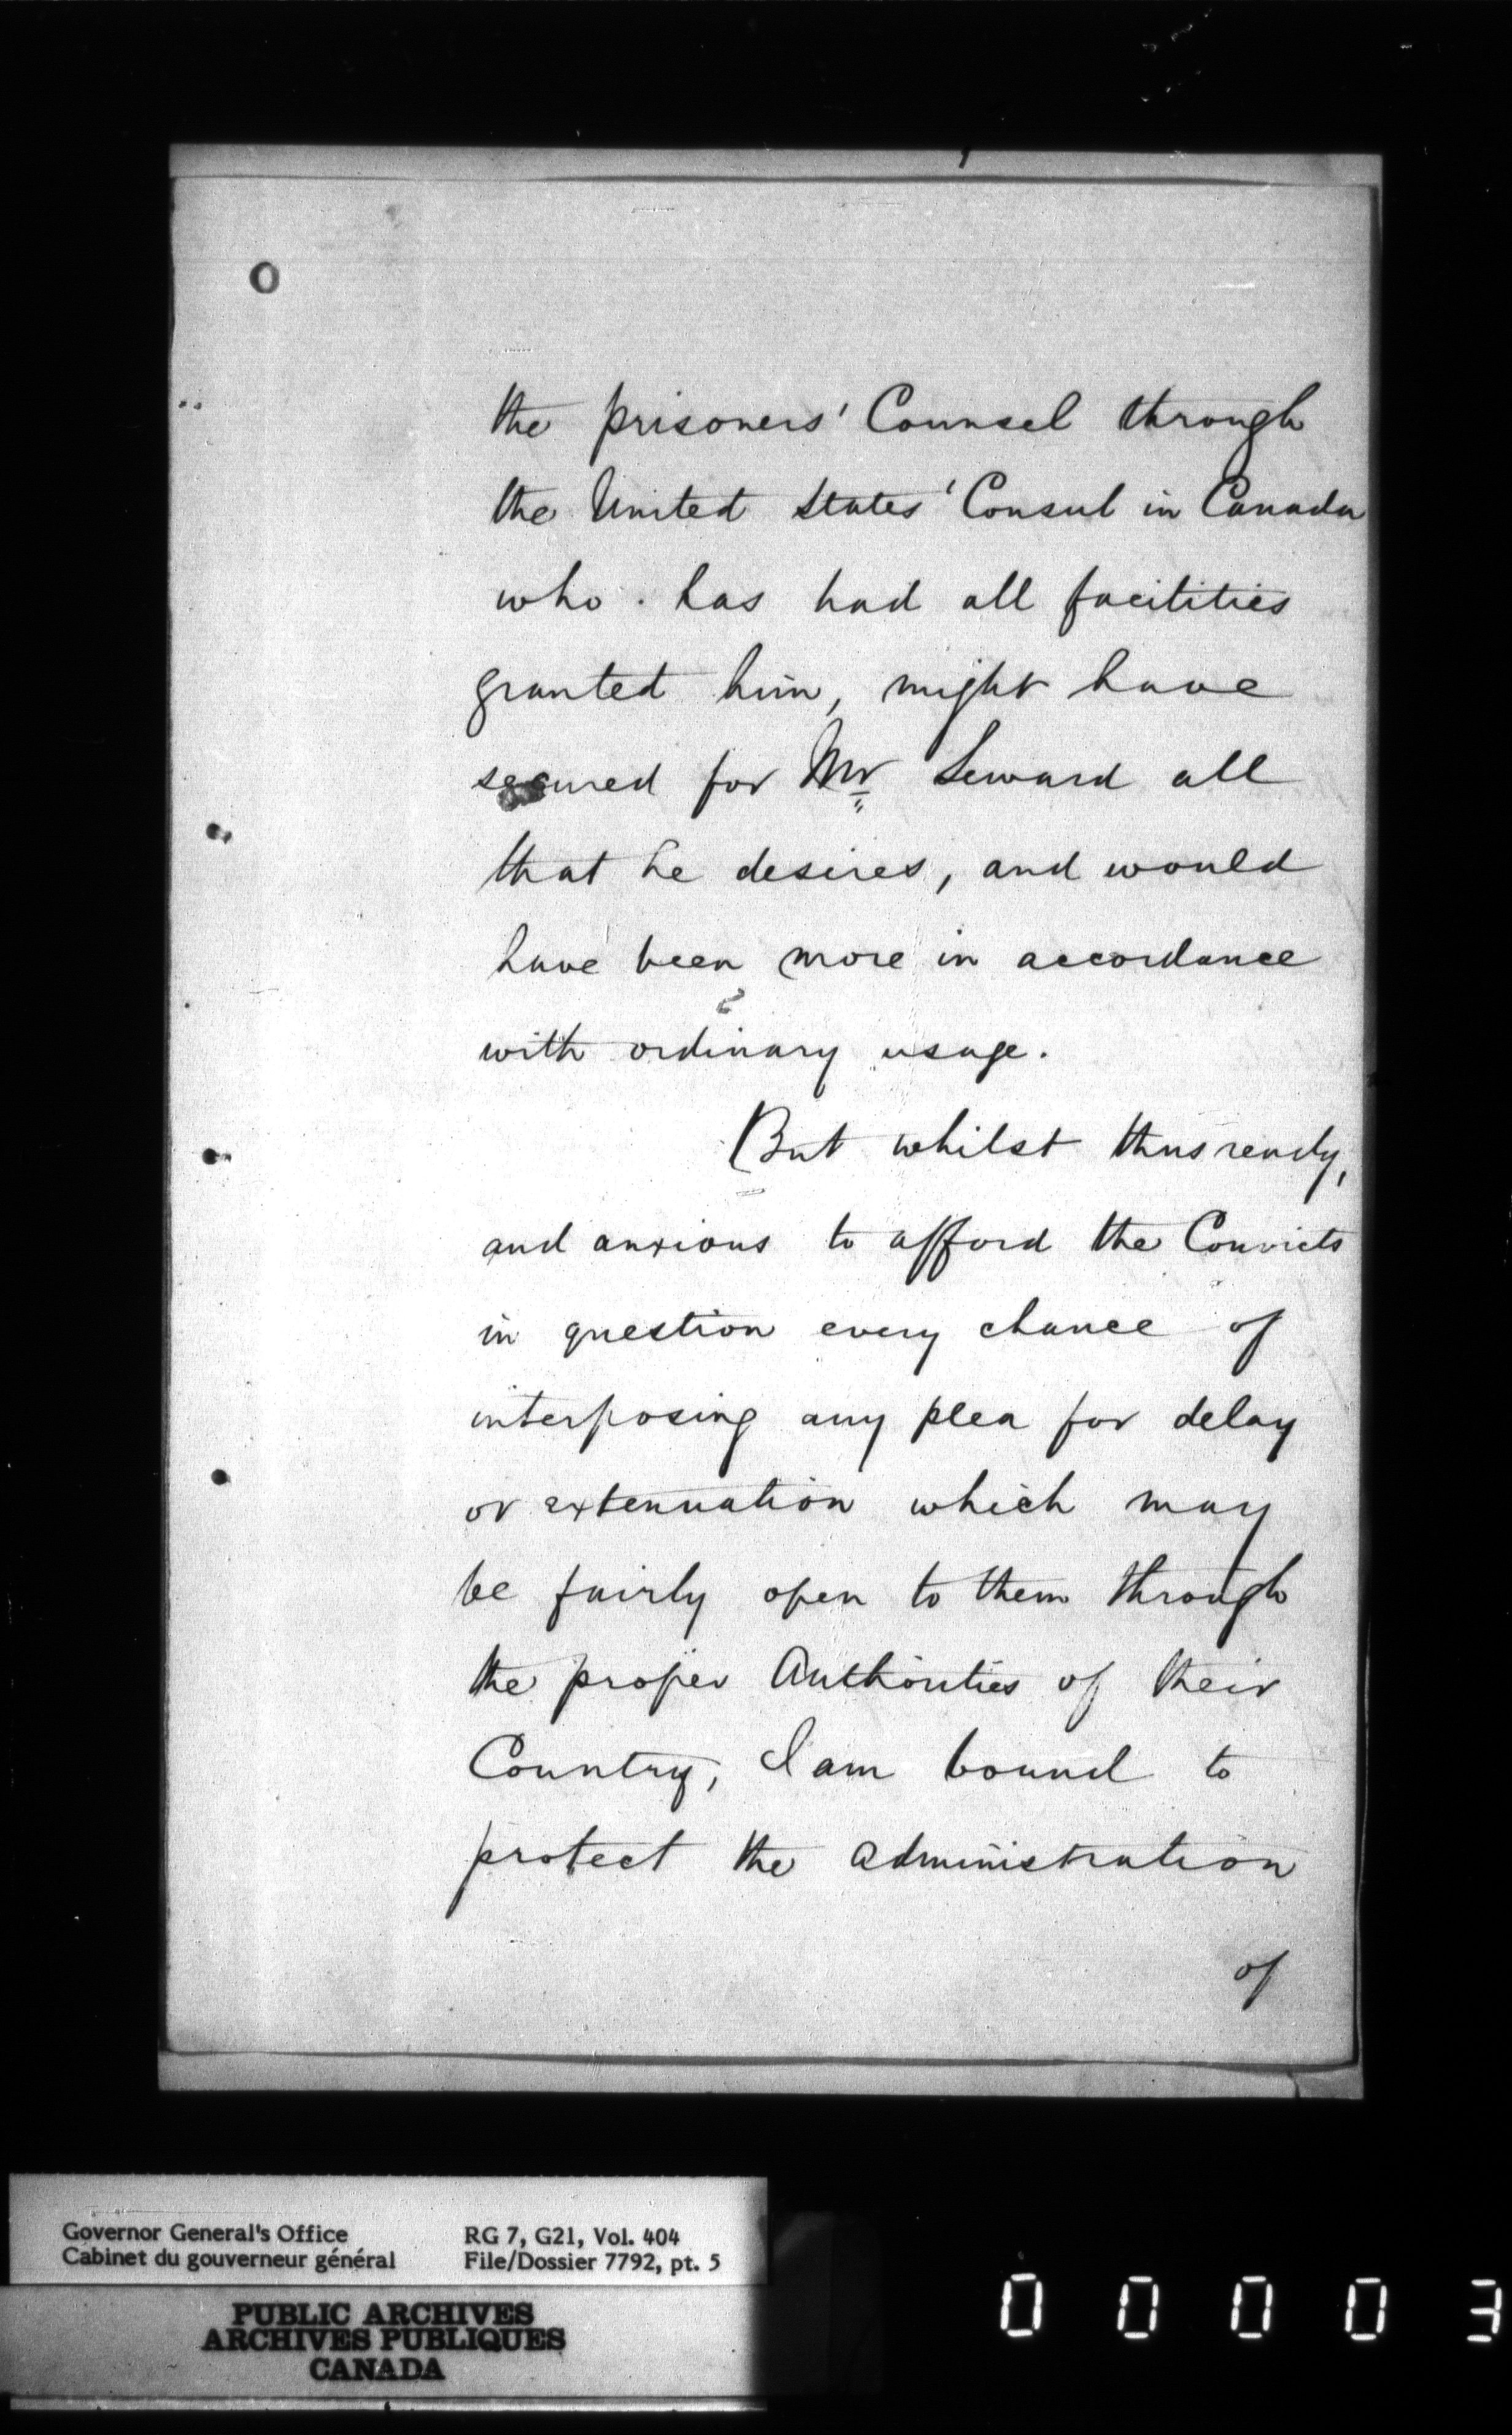 the prisoners' Counsel through
the United States' Consul in Canada
who has had all facilities
granted him, might have
secured for Mr Seward all
that he desires, and would
have been more in accordance
with ordinary usage.
But whilst thus ready,
and anxious to afford the Convicts
in question every chance of
interposing any plea for delay
or extenuation which may
be fairly open to them through
the proper Authorities of their
Country, I am bound to
protect the administration
of
Governor General's Office
Cabinet du gouverneur général
RG 7, G21, Vol. 404
File/Dossier 7792, pt. 5
PUBLIC ARCHIVES
ARCHIVES PUBLIQUES
CANADA
0 0 0 0 3